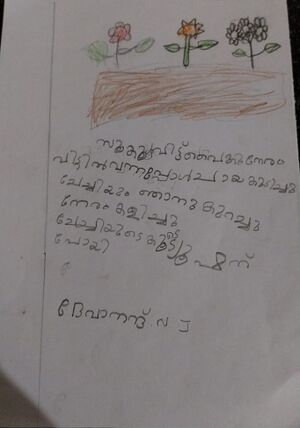 സ്കൂള്വിട്ട് വൈകുന്നേരം
വീട്ടിൽ വന്നപ്പോൾ ചായ കുടിച്ചു
ചേച്ചിയും ഞാനു കുറച്ചു
നേരം കളിച്ചു
ചേച്ചിയുടെ കൂടെ ട്യൂഷന്
പോയി
ദേവാനന്ദ് N J